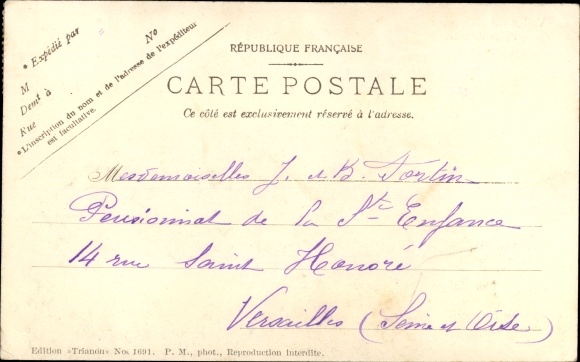 * Expédié par
No
M
Demt à
Rue
* L'inscription du nom et de l'adresse de l'expéditeur
est facultative.
RÉPUBLIQUE FRANÇAISE
CARTE POSTALE
Ce côté est exclusivement réservé à l'adresse.
Mesdemoiselles J. et B. Fortin
Pensionnat de la Ste Enfance
14 rue Saint Honoré
Versailles (Seine et Oise)
Edition «Trianon» No. 1691. P. M., phot., Reproduction interdite.